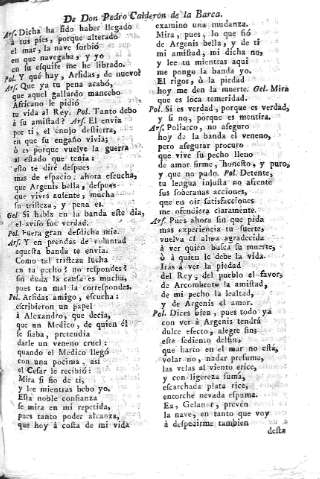 De Don Pedro Calderon de la Barca.
Ars. Dicha ha sido haber llegado
à tus pies, porque alterado
el mar, la nave sorbiò
en que navegaba; y yo
en su esquife me he librado.
Pol. Y què hay, Arsidas, de nuevo?
Ars. Que ya tu pena acabò,
que aquel gallardo mancebo
Africano le pidiò
tu vida al Rey. Pol. Tanto debo
à su amistad? Ars. El envia
por ti, el
en que su engaño vivias;
ò es porque vuelve la guerra
al estado que tenia;
esto te dirè despues
mas de espacio: ahora escucha,
que Argenis bella, despues
que vives ausente, mucha
su tristeza, y pena es.
Gel. Si habla en la banda este dia,
el aviso fue verdad.
Pol. Fuera gran desdicha mia.
Ars. Y en prendas de voluntad
aquesta banda te envia.
Como tal tristeza lucha
en tu pecho? no respondes?
sin duda la causa es mucha,
pues tan mal la correspondes.
Pol. Arsidas amigo, escucha:
escribieron un papel
à Alexandro, que decia,
que un Medico, de quien èl
se fiaba, pretendia
darle un veneno cruel:
quando el Medico llegò
con una pocima, asi
el Cesar le recibiò:
Mira si fio de ti,
y lee mientras bebo yo.
Esta noble confianza
se mira en mi repetida,
pues tanto poder alcanza,
que hoy à costa de mi vida
examino una mudanza.
Mira, pues, lo que fiò
de Argenis bella, y de ti
mi amistad, mi dicha no,
y lee tu mientras aqui
me pongo la banda yo.
El rigor, ò la piedad
hoy me den la muerte. Gel. Mira
que es loca temeridad.
Pol. Si es verdad, porque es verdad,
y si no, porque es mentira.
Ars. Poliarco, no aseguro
hoy de la banda el veneno,
pero asegurar procuro
que vive su pecho lleno
de amor firme, honesto, y puro,
y que no pudo. Pol. Detente,
tu lengua injusta no afrente
sus soberanas acciones,
que en oir satisfacciones
me ofendiera claramente.
Ars. Pues ahora sin que pida
mas experiencia tu suerte,
vuelva el alma agradecida
à ver quien busca su muerte,
ò à quien le debe la vida.
Iràs à ver la piedad
del Rey, del pueblo el favor,
de Arcombroto la amistad,
de mi pecho la lealtad,
y de Argenis el amor.
Pol. Dices bien, pues todo ya
con ver à Argenis tendrà
dulce efecto, alegre fin:
este sediento delfin,
que harto en el mar no està,
volar no, nadar presume,
las velas al viento erice,
y con ligereza suma,
escarchada plata rice,
encorche nevada espuma.
Ea, Gelanor, prevèn
la nave, en tanto que voy
à despedirme tambien
desta